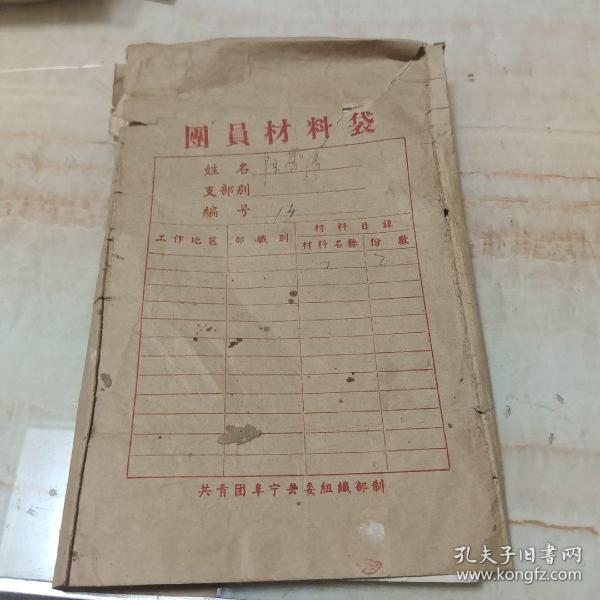 團員材料袋
姓名
支部别
編号 14
材料目録
工作地区 部职别 材料名称 份数
2
共青团阜宁县委組織部制
孔夫子旧书网
www.kongfz.com